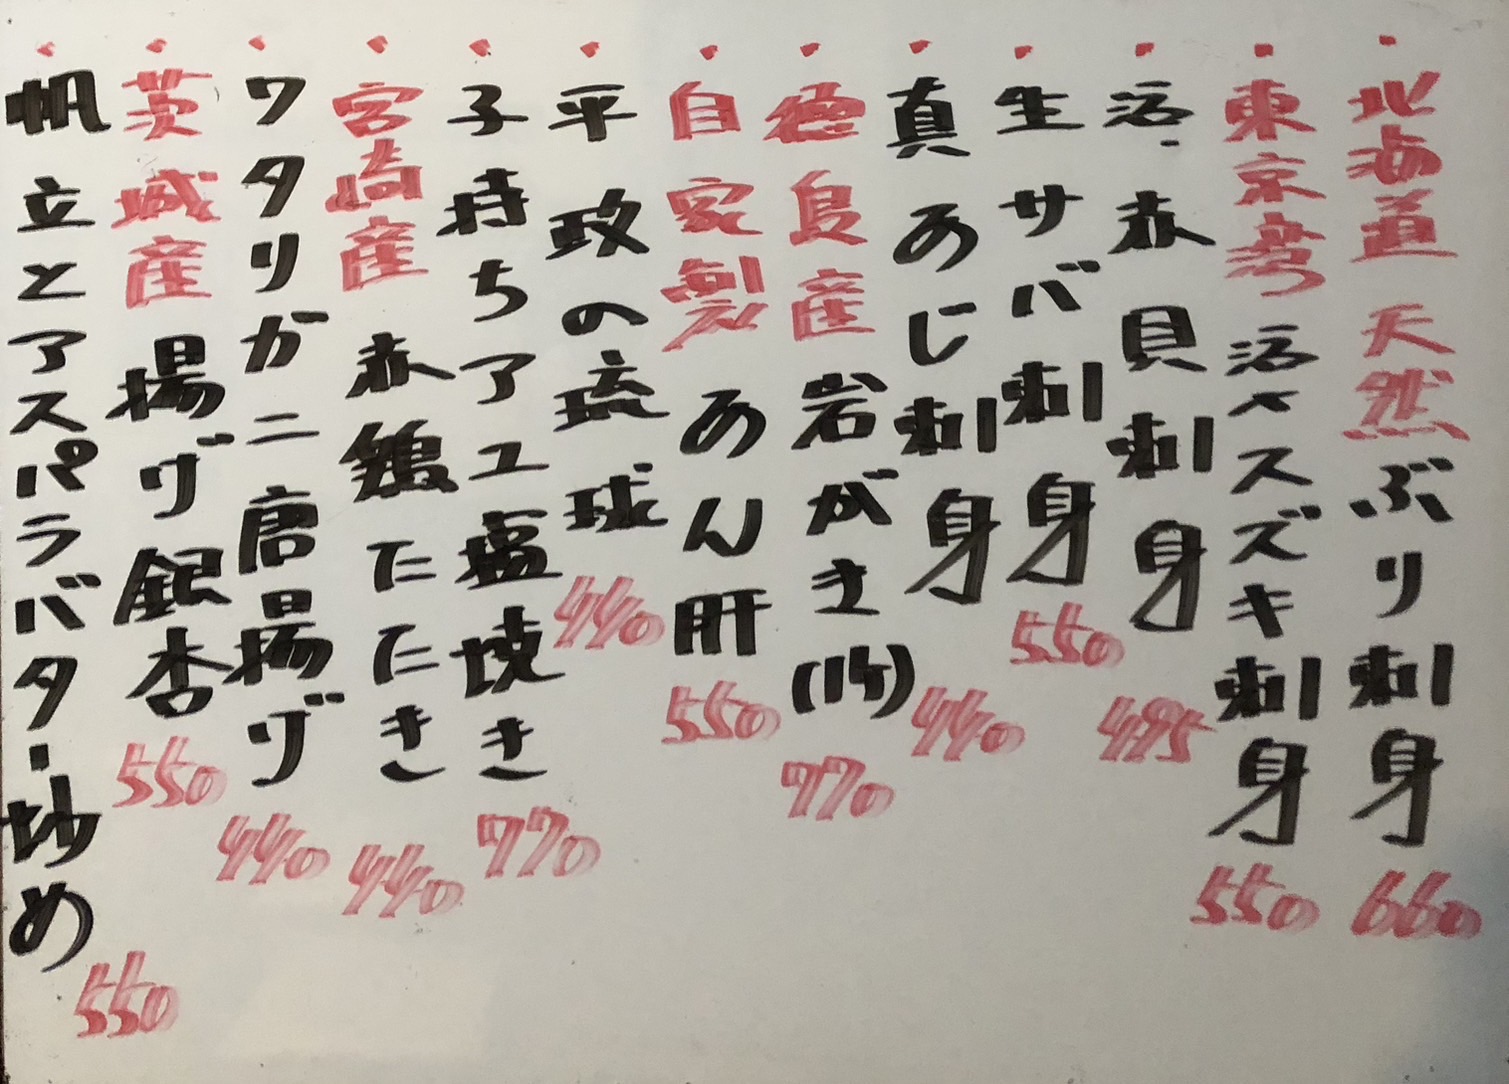 ・北海道 天然ぶり刺身 660
・東京湾 活〆スズキ刺身 550
・活赤貝刺身 495
・生サバ刺身 550
・真あじ刺身 440
・徳島産 岩がき(1ケ) 770
・自家製 あん肝 550
・平政の琉球 440
・子持ちアユ塩焼き 770
・宮崎産 赤鶏たたき 440
・ワタリガニ唐揚げ 440
・茨城産 揚げ銀杏 550
・帆立とアスパラバター炒め 550